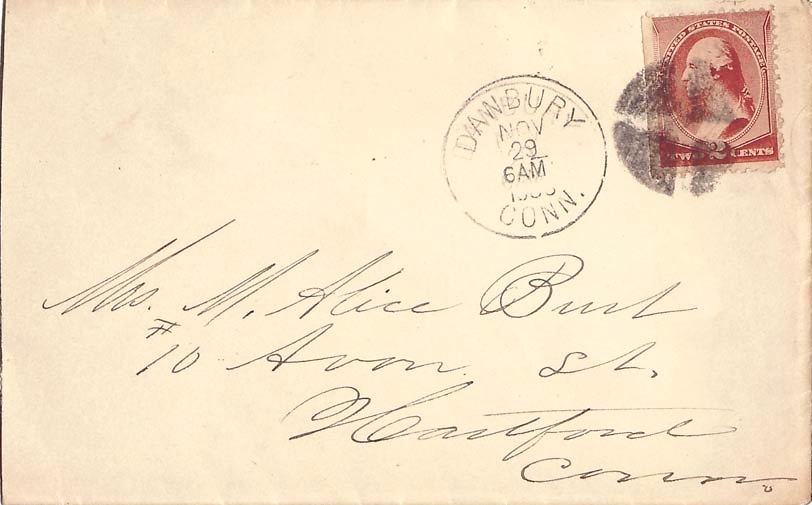 UNITED STATES POSTAGE
2
CENTS
DANBURY
NOV
29
6AM
CONN.
Mrs. M. Alice Burt
#10 Avon St.
Hartford
Conn.